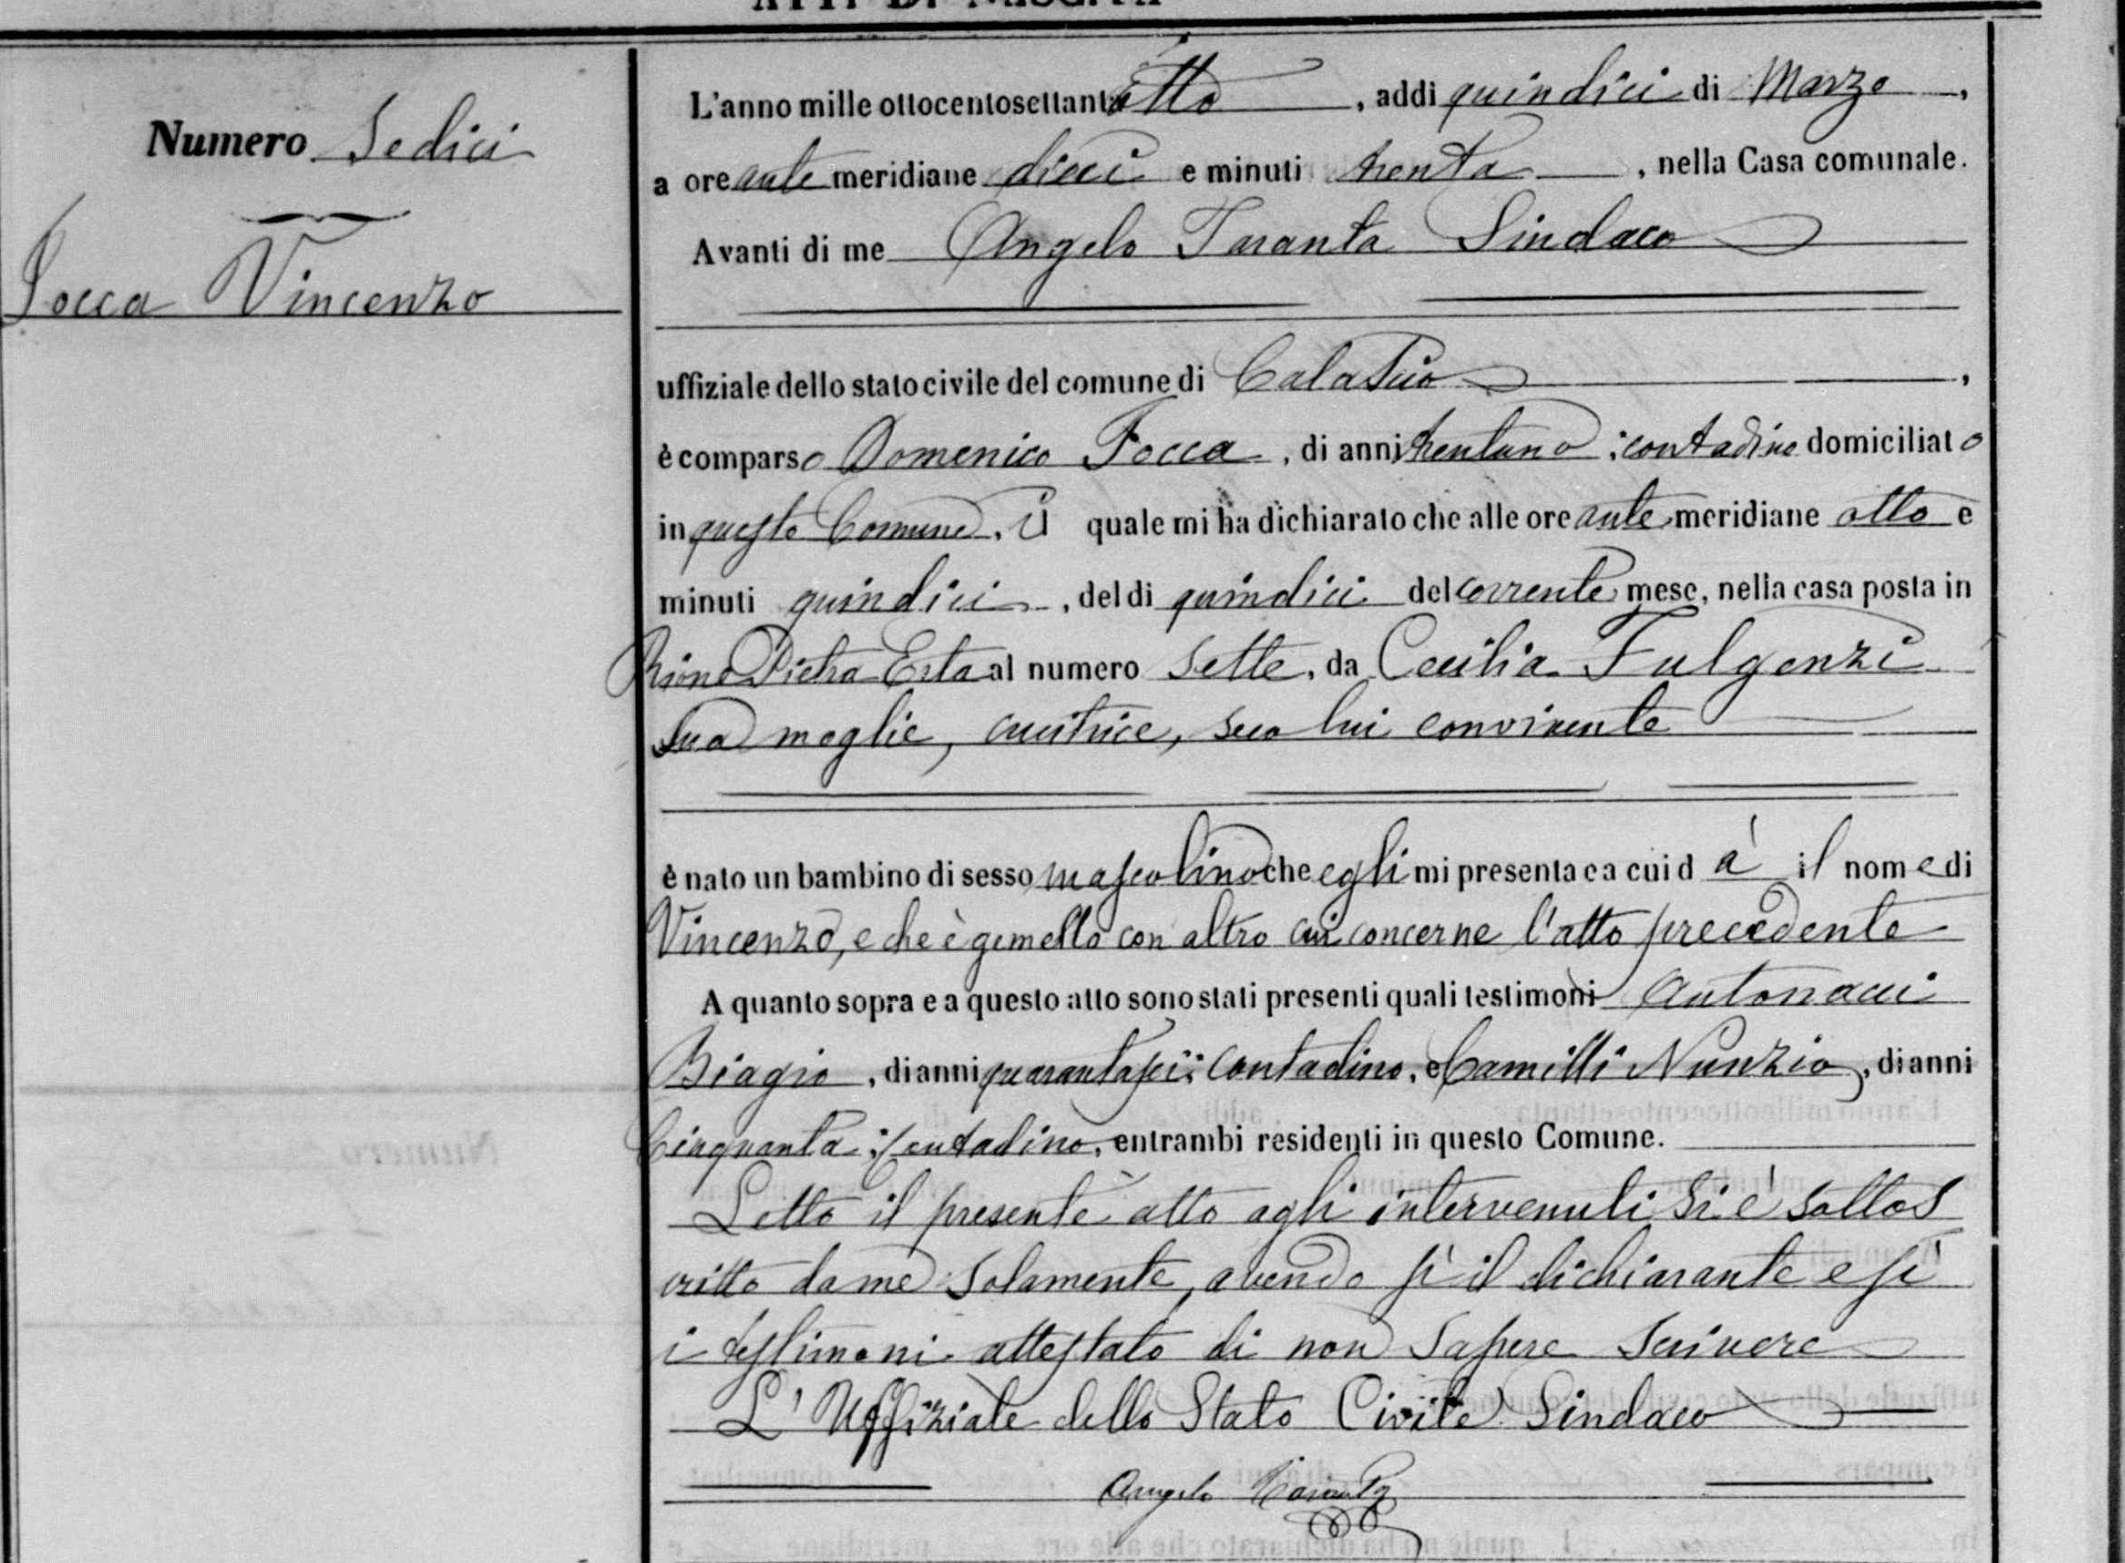 Numero Sedici
Focca Vincenzo
L'anno mille ottocentosettantaotto, addi quindici di Marzo,
a ore ante meridiane dieci e minuti trenta, nella Casa comunale.
Avanti di me Angelo Taranta Sindaco
uffiziale dello stato civile del comune di Calascio,
è comparso Domenico Focca, di anni trentuno, contadino domiciliato
in questo Comune, il quale mi ha dichiarato che alle ore ante meridiane otto e
minuti quindici, del di quindici del corrente mese, nella casa posta in
Rione Pietra Erta al numero sette, da Cecilia Fulgenzi
sua moglie, cucitrice, seco lui convivente
è nato un bambino di sesso mascolino che egli mi presenta e a cui dà il nome di
Vincenzo, e che è gemello con altro cui concerne l'atto precedente
A quanto sopra e a questo atto sono stati presenti quali testimoni Antonacci
Biagio, di anni quarantasei, contadino, e Camilli Nunzio, di anni
Cinquanta, Contadino, entrambi residenti in questo Comune.
Letto il presente atto agli intervenuti si è sottos
critto da me solamente, avendo sì il dichiarante e sì
i testimoni attestato di non sapere scrivere
L'Uffiziale dello Stato Civile Sindaco
Angelo Taranta